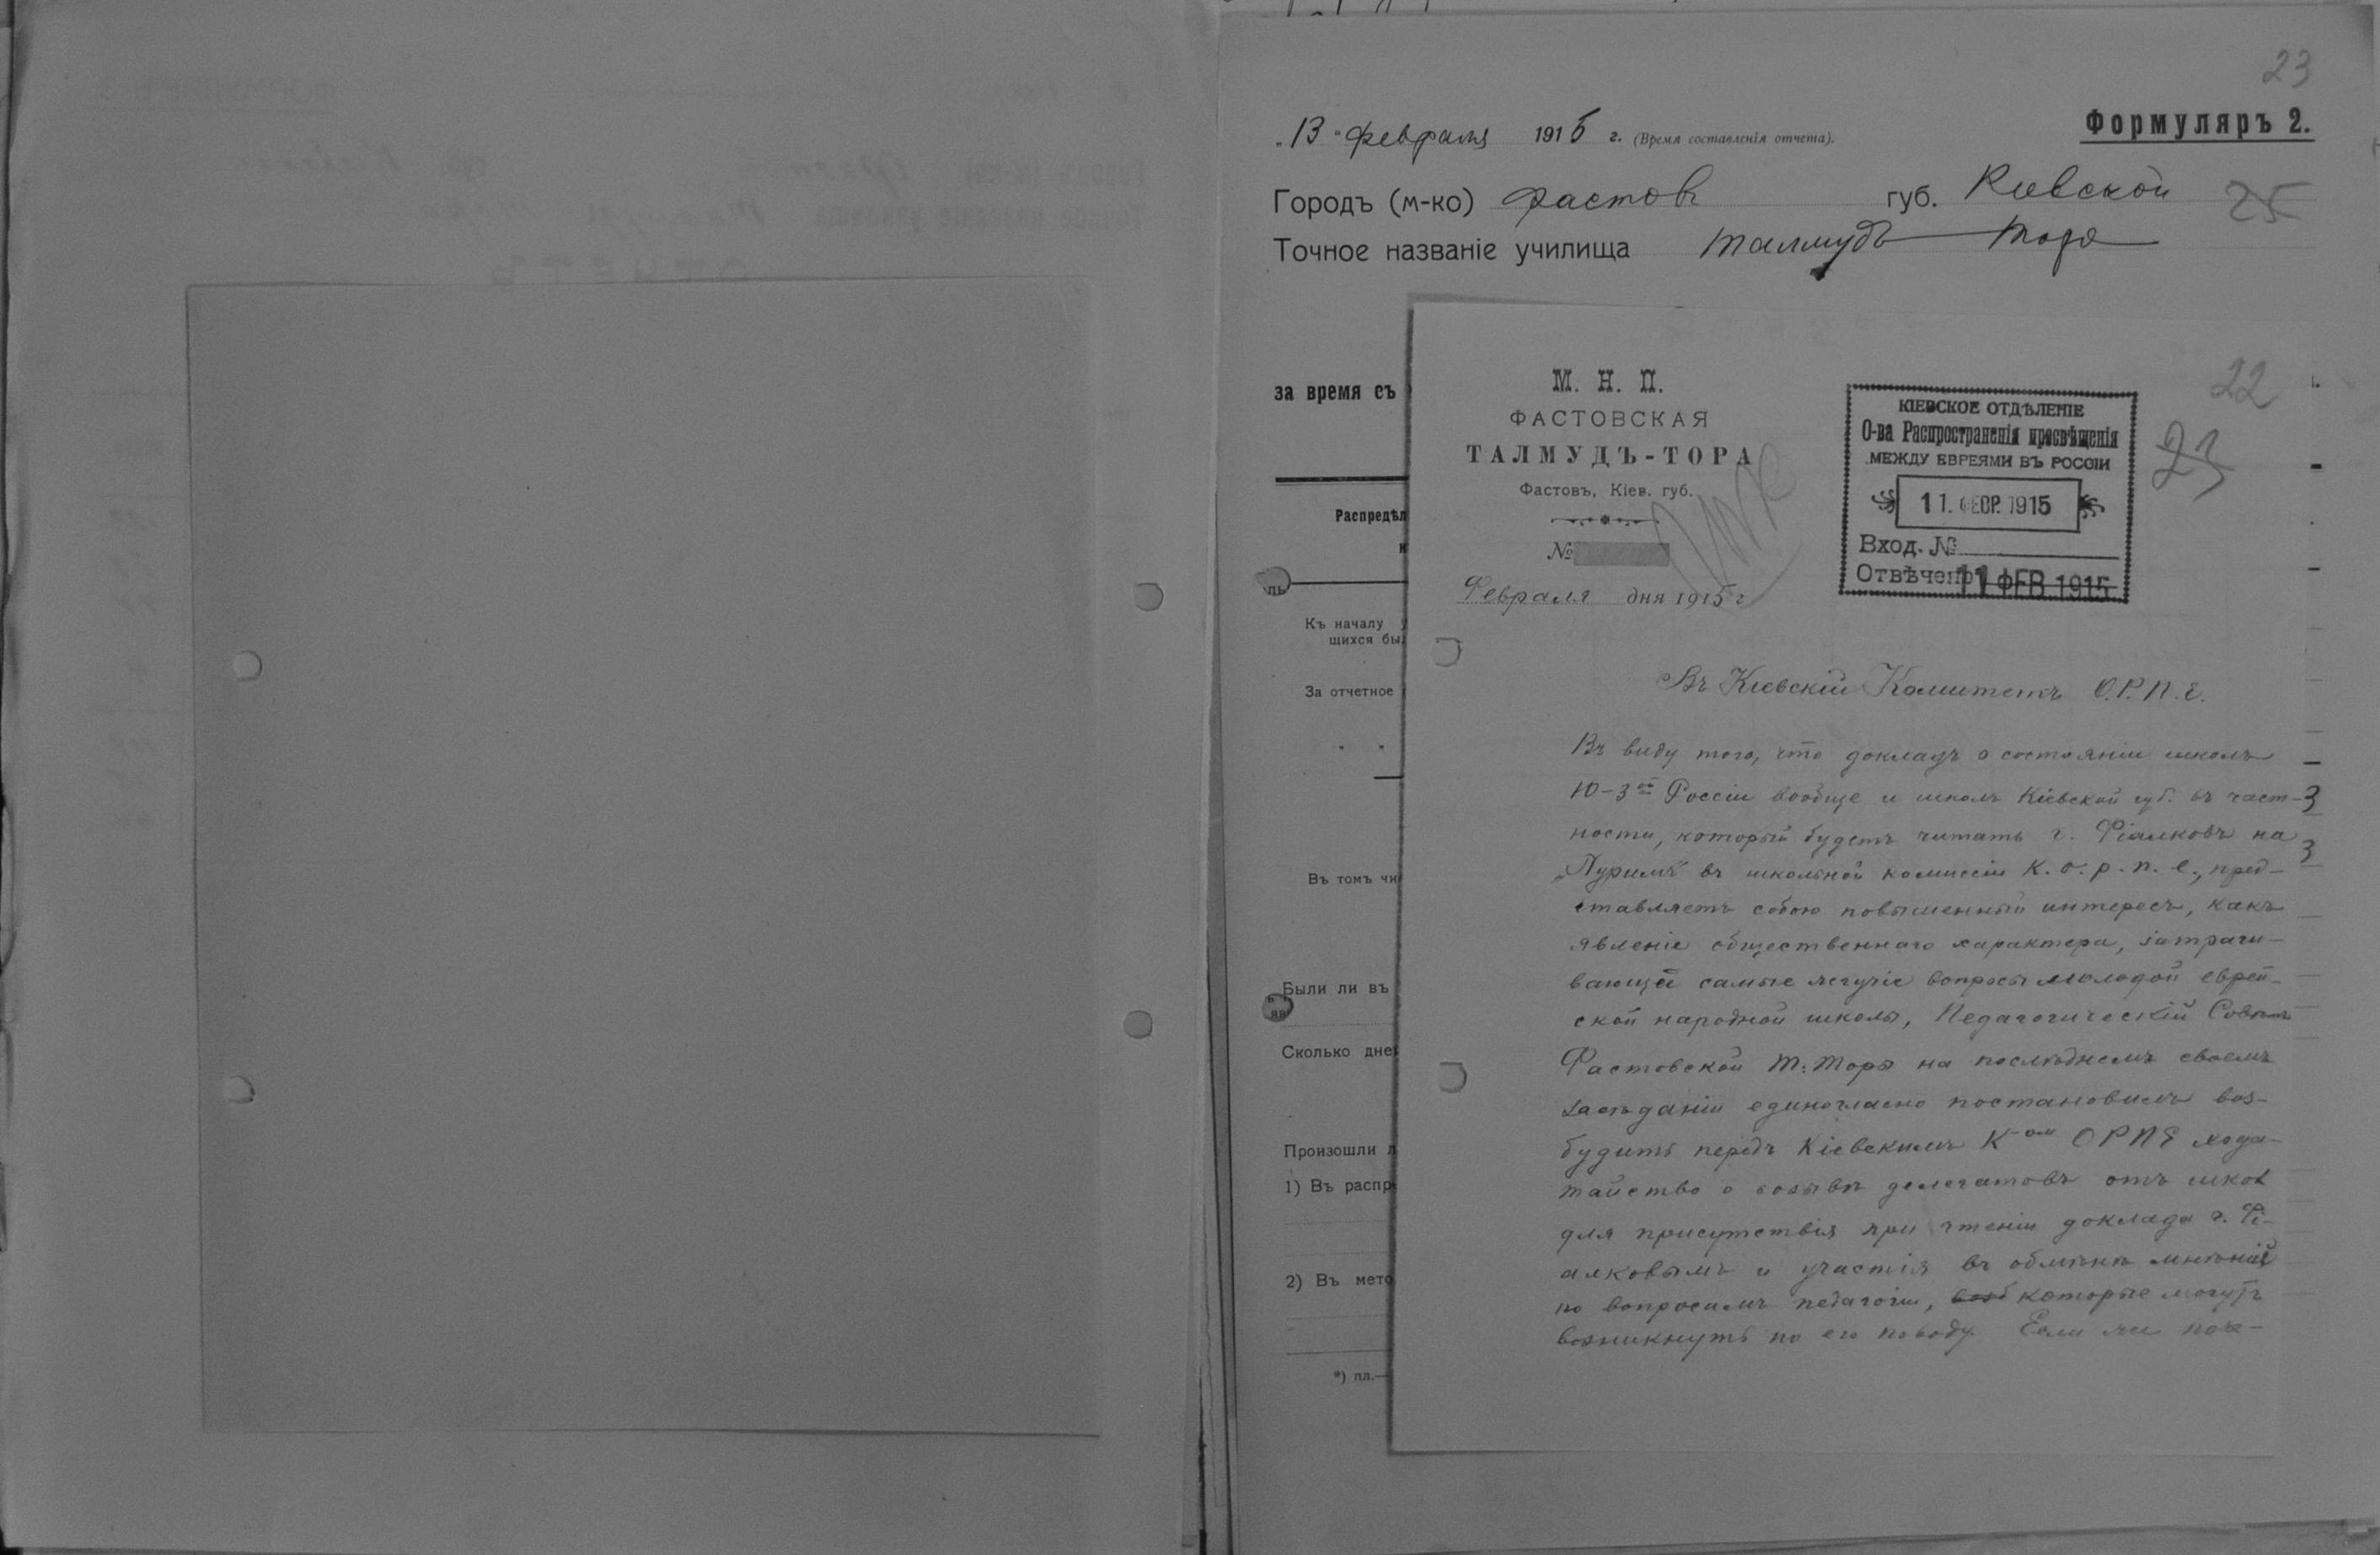 23
Формуляръ 2.
„13“ февраля 1915 г. (Время составленія отчета).
Городъ (м-ко) Фастовъ губ. Кіевской
25
Точное названіе училища Талмудъ Тора
за время съ
Распредѣл
и
ль
Къ началу у
щихся бы
За отчетное
" "
Въ томъ чи
Были ли въ
яв
Сколько дне
Произошли л
1) Въ распр
2) Въ мето
*) пл.—
3
3
М. Н. П.
ФАСТОВСКАЯ
ТАЛМУДЪ-ТОРА
Фастовъ, Кіев. губ.
№
Февраля дня 1915 г
КІЕВСКОЕ ОТДѢЛЕНІЕ
О-ва Распространенія просвѣщенія
МЕЖДУ ЕВРЕЯМИ ВЪ РОССІИ
11. ФЕВР. 1915
Вход. №
Отвѣчено 11 ФЕВ 1915
22
23
Въ Кіевскій Комитетъ О.Р.П.Е.
Въ виду того, что докладъ о состояніи школъ
Ю-З ой Россіи вообще и школъ Кіевской губ. въ част-
ности, который будетъ читать г. Фіалковъ на
„Пуримъ“ въ школьной комиссіи К. о. р. п. е., пред-
ставляетъ собою повышенный интересъ, какъ
явленіе общественнаго характера, затраги-
вающее самые жгучіе вопросы молодой еврей-
ской народной школы, Педагогическій Совѣтъ
Фастовской Т. Торы на послѣднемъ своемъ
засѣданіи единогласно постановилъ воз-
будить передъ Кіевскимъ К-ом ОРПЕ хода-
тайство о созывѣ делегатовъ отъ школ
для присутствія при чтеніи доклада г. Фі-
алковымъ и участія въ обмѣнѣ мнѣній
по вопросамъ педагогіи, которые могутъ
возникнуть по его поводу. Если же поче-